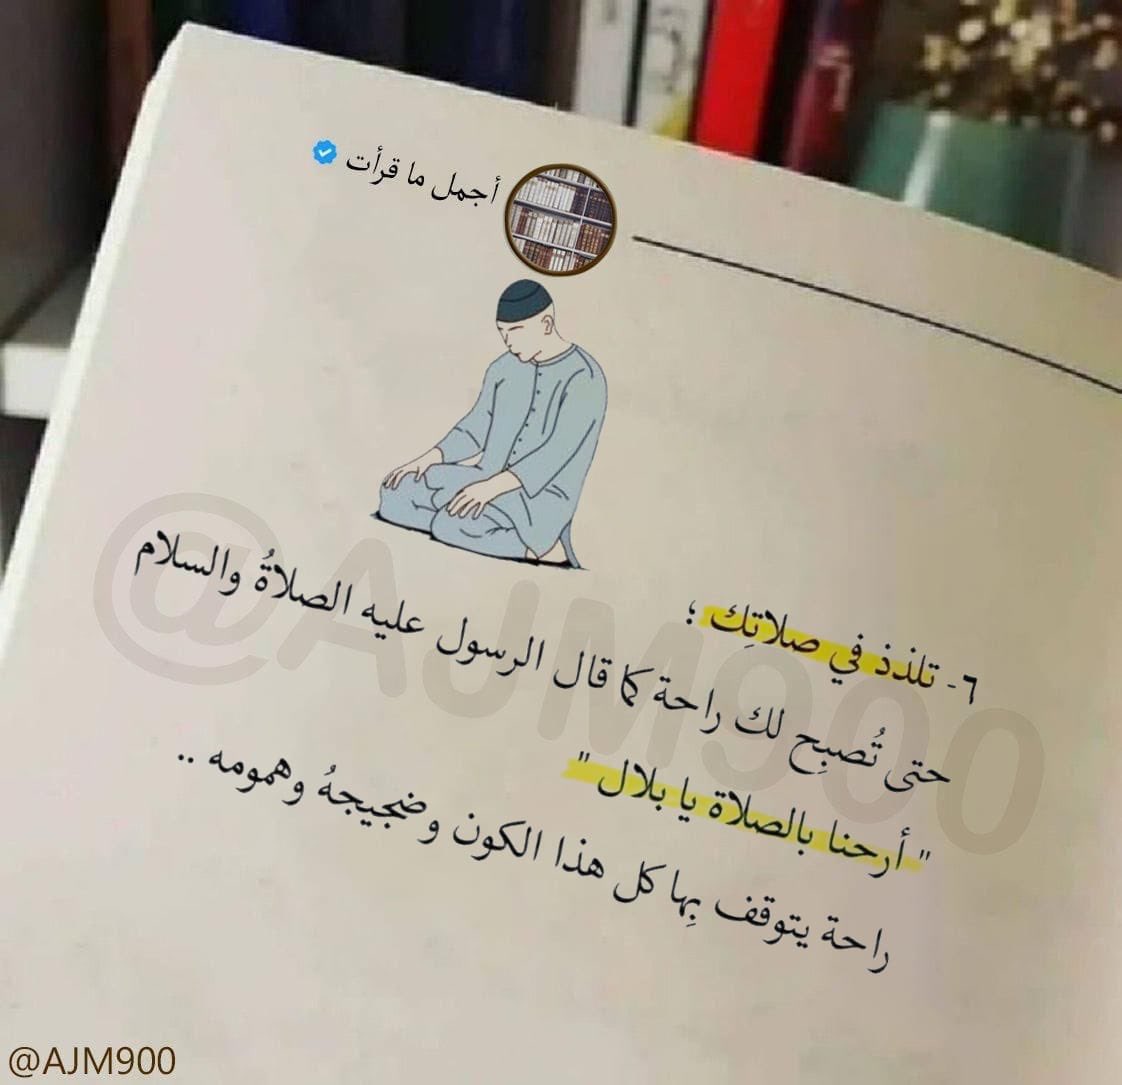 أجمل ما قرأت
٦- تلذذ في صلاتِك ؛
حتى تُصبِح لك راحة كما قال الرسول عليه الصلاةُ والسلام
" أرحنا بالصلاة يا بلال "
راحة يتوقف بِها كل هذا الكون وضجيجهُ وهمومه ..
@AJM900
@AJM900